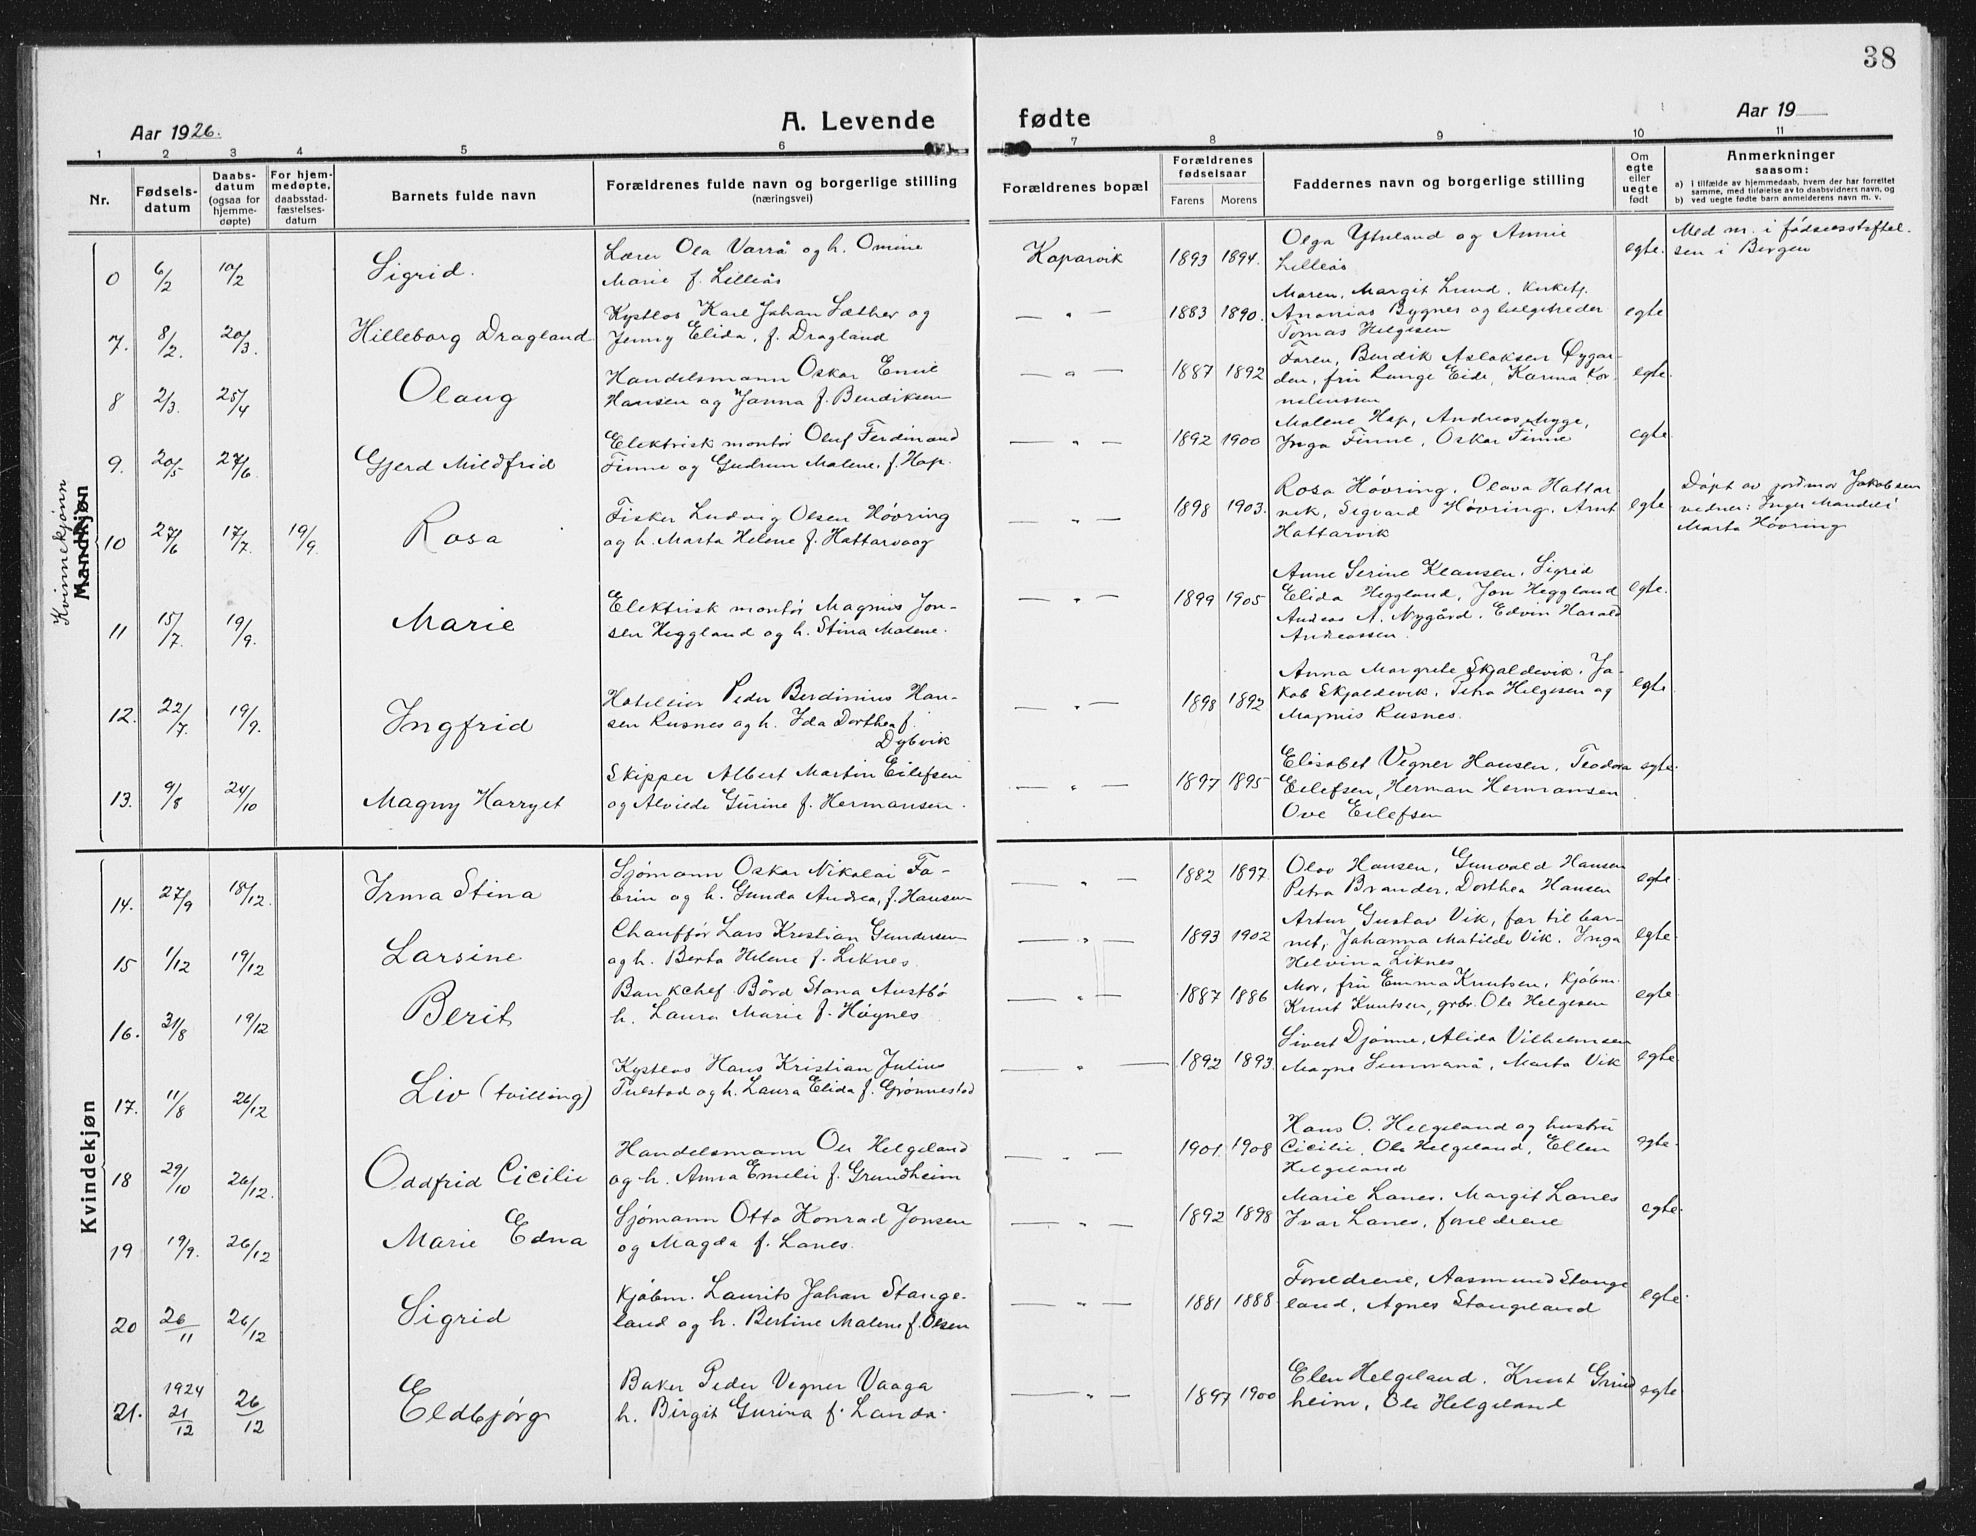 38
Aar 1926.
A. Levende fødte
Aar 19
1 2 3 4 5 6 7 8 9 10 11
Nr.
Fødsels-
datum
Daabs-
datum
(ogsaa for
hjemme-
døpte)
For hjem-
medøpte,
daabsstad-
fæstelses-
datum
Barnets fulde navn
Forældrenes fulde navn og borgerlige stilling
(næringsvei)
Forældrenes bopæl
Forældrenes
fødselsaar
Farens Morens
Faddernes navn og borgerlige stilling
Om
egte
eller
uegte
født
Anmerkninger
saasom:
a) i tilfælde av hjemmedaab, hvem der har forrettet
samme, med tilføielse av to daabsvidners navn, og
b) ved uegte fødte barn anmelderens navn m. v.
Kvinnekjønn
Mandkjøn
0 6/2 10/2 Sigrid.
Lærer Ola Varrå og h. Omine
Marie f. Lilleås
Kopervik 1893 1894.
Olga Ytreland og Annie
Lilleås
egte.
Med m. i fødselsstiftel-
sen i Bergen
7. 8/2. 20/3. Hilleborg Dragland
Kystlos Karl Johan Sæther og
Jenny Elida, f. Dragland
— " — 1883 1890.
Moren, Margit Lund, kirketj.
Ananias Bygnes og helgetreder
Tomas Helgesen
egte
8 2/3. 25/4 Olaug
Handelsmann Oskar Emil
Hansen og Janna f. Bendiksen
— " — 1887 1892
Faren, Bendik Aslaksen Øygar-
den, fru Runge Eide, Karina Kor-
neliussen
egte.
9. 20/5 27/6. Gjerd Mildfrid
Elektrisk montør Oluf Ferdinand
Finne og Gudrun Malene, f. Hap.
— " — 1892 1900
Malene Hap, Andreas Mygge,
Inga Finne, Oskar Finne
egte.
10 27/6 17/7. 19/9. Rosa
Fisker Ludvig Olsen Høvring
og h. Marta Helene f. Hattarvaag
— " — 1898 1903.
Rosa Høvring, Olava Hattar
vik, Sigvard Høvring, Arnt
Hattarvik
egte
Døpt av jordmor Jakobsen
vidner: Inger
Marta Høvring
11 15/7. 19/9. Marie
Elektrisk montør Magnus Jon-
sen Heggland og h. Stina Malene.
— " — 1899 1905
Anne Serine Klausen, Sigrid
Elida Heggland, Jon Heggland
Andreas A. Nygård, Edvin Harald
Andreassen.
egte.
12. 22/7. 19/9. Ingfrid
Hoteleier Peder Berdinius Han-
sen Rusnes og h. Ida Dorthea f.
Dybvik
— " — 1898 1892
Anna Margrete Skjoldevik, Ja-
kob Skjoldevik, Petra Helgesen og
Magnus Rusnes.
egte
13. 9/8 24/10 Magny Harryet
Skipper Albert Martin Eilefsen
og Alvilde Gurine f. Hermansen.
— " — 1897 1895
Elisabet Vegner Hansen, Teodora
Eilefsen, Herman Hermansen
Ove Eilefsen
egte.
Kvindekjøn
14. 27/9 18/12. Irma Stina
Sjømann Oskar Nikolai Fa-
brin og h. Gunda Andrea, f. Hansen
— " — 1882 1897.
Olav Hansen, Gunvald Hansen
Petra Brander, Dorthea Hansen
egte.
15 1/12 19/12 Larsine
Chauffør Lars Kristian Gundersen
og h. Berta Helene f. Liknes.
— " — 1893 1902
Artur Gustav Vik, far til bar-
net, Johanna Matilde Vik. Inga
Helvina Liknes
egte.
16. 31/8 19/12 Berit
Bankchef Bård Stana Austbø
h. Laura Marie f. Høynes
— " — 1887 1886
Mor, fru Emma Knutsen, kjøbm.
Knut Knutsen, grbr. Ole Helgesen
egte.
17. 11/8 26/12 Liv (tvilling)
Kystlos Hans Kristian Julius
Tuestad og h. Laura Elida f. Grønnestad
— " — 1892 1893.
Sivert Djønne, Alida Vilhelmsen
Magne Sunnanå, Marta Vik
egte.
18 29/10 26/12. Oddfrid Cicilie
Handelsmann Ole Helgeland
og h. Anna Emelie f. Grundheim
— " — 1901 1908
Hans O. Helgeland og hustru
Cicilie, Ole Helgeland, Ellen
Helgeland
egte.
19 19/9. 26/12 Marie Edna
Sjømann Otto Konrad Jonsen
og Magda f. Lanes.
— " — 1892 1898
Marie Lanes, Margit Lanes
Ivar Lanes, foreldrene
egte.
20 26/11 26/12 Sigrid
Kjøbm. Laurits Johan Stange-
land og h. Bertine Malene f. Olsen
— " — 1881 1888
Foreldrene, Aasmund Stange
land, Agnes Stangeland
egte.
21. 1924 21/12 26/12 Eldbjørg
Baker Peder Vegner Vaaga
h. Birgit Gurina f. Landa.
— " — 1897 1900
Elen Helgeland, Knut Grind
heim, Ole Helgeland
egte